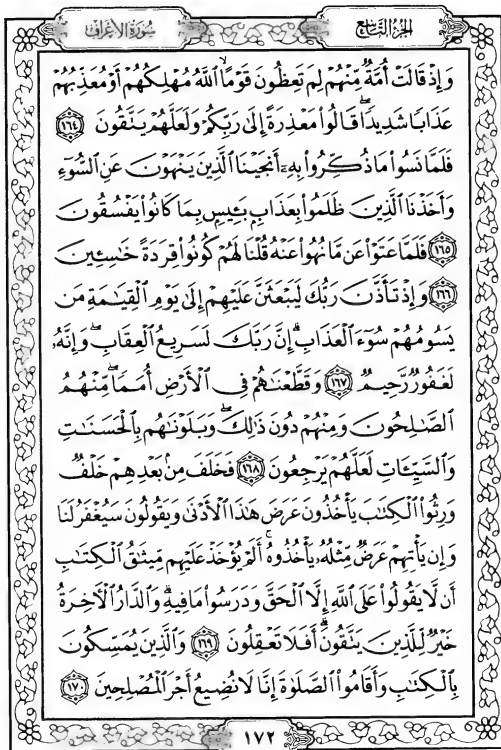 سُورَةُ الأَعْرَافِ
الجُزْءُ التَّاسِعُ
وَإِذْ قَالَتْ أُمَّةٌ مِّنْهُمْ لِمَ تَعِظُونَ قَوْمًا ۙ اللَّهُ مُهْلِكُهُمْ أَوْ مُعَذِّبُهُمْ
عَذَابًا شَدِيدًا ۖ قَالُوا۟ مَعْذِرَةً إِلَىٰ رَبِّكُمْ وَلَعَلَّهُمْ يَتَّقُونَ ١٦٤
فَلَمَّا نَسُوا۟ مَا ذُكِّرُوا۟ بِهِۦٓ أَنجَيْنَا الَّذِينَ يَنْهَوْنَ عَنِ السُّوٓءِ
وَأَخَذْنَا الَّذِينَ ظَلَمُوا۟ بِعَذَابٍۭ بَـِٔيسٍۭ بِمَا كَانُوا۟ يَفْسُقُونَ
١٦٥ فَلَمَّا عَتَوْا۟ عَن مَّا نُهُوا۟ عَنْهُ قُلْنَا لَهُمْ كُونُوا۟ قِرَدَةً خَٰسِـِٔينَ
١٦٦ وَإِذْ تَأَذَّنَ رَبُّكَ لَيَبْعَثَنَّ عَلَيْهِمْ إِلَىٰ يَوْمِ الْقِيَٰمَةِ مَن
يَسُومُهُمْ سُوٓءَ الْعَذَابِ ۗ إِنَّ رَبَّكَ لَسَرِيعُ الْعِقَابِ ۖ وَإِنَّهُۥ
لَغَفُورٌ رَّحِيمٌ ١٦٧ وَقَطَّعْنَٰهُمْ فِى الْأَرْضِ أُمَمًا ۖ مِّنْهُمُ
الصَّٰلِحُونَ وَمِنْهُمْ دُونَ ذَٰلِكَ ۖ وَبَلَوْنَٰهُم بِالْحَسَنَٰتِ
وَالسَّيِّـَٔاتِ لَعَلَّهُمْ يَرْجِعُونَ ١٦٨ فَخَلَفَ مِنۢ بَعْدِهِمْ خَلْفٌ
وَرِثُوا۟ الْكِتَٰبَ يَأْخُذُونَ عَرَضَ هَٰذَا الْأَدْنَىٰ وَيَقُولُونَ سَيُغْفَرُ لَنَا
وَإِن يَأْتِهِمْ عَرَضٌ مِّثْلُهُۥ يَأْخُذُوهُ ۚ أَلَمْ يُؤْخَذْ عَلَيْهِم مِّيثَٰقُ الْكِتَٰبِ
أَن لَّا يَقُولُوا۟ عَلَى اللَّهِ إِلَّا الْحَقَّ وَدَرَسُوا۟ مَا فِيهِ ۗ وَالدَّارُ الْءَاخِرَةُ
خَيْرٌ لِّلَّذِينَ يَتَّقُونَ ۗ أَفَلَا تَعْقِلُونَ ١٦٩ وَالَّذِينَ يُمَسِّكُونَ
بِالْكِتَٰبِ وَأَقَامُوا۟ الصَّلَوٰةَ إِنَّا لَا نُضِيعُ أَجْرَ الْمُصْلِحِينَ ١٧٠
١٧٢